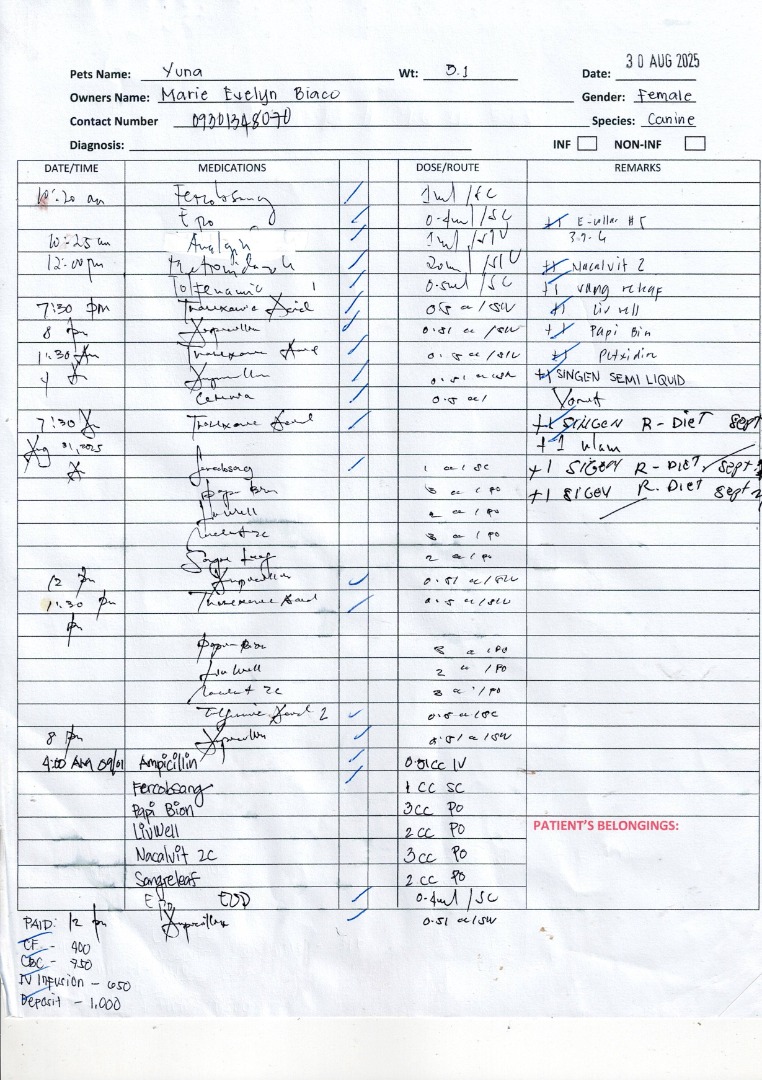 30 AUG 2025
Pets Name: Yuna Wt: 3.1 Date:
Owners Name: Marie Evelyn Biaco Gender: Female
Contact Number 09301348070 Species: Canine
Diagnosis: INF NON-INF
DATE/TIME MEDICATIONS DOSE/ROUTE REMARKS
10:20 am Fercobsang 1ml/SC
Epo 0.4ml/SC +1 E-collar #5
10:25 am 1ml/SIV
12:00pm /SIV +1 Nacalvit 2
Tolfenamic 1 0.5ml/SC +1
7:30 pm Tranexamic Acid 0.5 cc/SIV +1 Liv well
8 pm Ampicillin 0.51 cc/SIV +1 Papi Bion
1:30 Am Tranexamic Acid 0.5 cc/SIV +1
4 Ampicillin 0.51 cc/SIV +1 SINGEN SEMI LIQUID
Cerenia 0.5 cc/
7:30 Tranexamic Acid +1 SINGEN R-DIET Sept
Aug 31, 2025 +1
Fercobsang 1 cc/SC +1 SIGEN R-DIET Sept
Papi Bion 3 cc/PO +1 SIGEV R.DIET Sept
Liv Well 2 cc/PO
Nacalvit 2c 3 cc/PO
2 cc/PO
12 pm Ampicillin 0.51 cc/SIV
1:30 pm Tranexamic Acid 0.5 cc/SIV
pm
Papi Bion 3 cc/PO
Liv Well 2 cc/PO
Nacalvit 2c 3 cc/PO
Acid 2 0.5 cc/SC
8 pm Ampicillin 0.51 cc/SIV
4:00 AM 09/01 Ampicillin 0.51cc IV
Fercobsang 1 CC SC
Papi Bion 3CC PO
LivWell 2CC PO
PATIENT'S BELONGINGS:
Nacalvit 2C 3CC PO
Sangreleaf 2 CC PO
EOD 0.4ml/SC
PAID: 12 pm Ampicillin 0.51 cc/SIV
CF - 400
CBC - 750
IV Infusion - 650
Deposit - 1,000